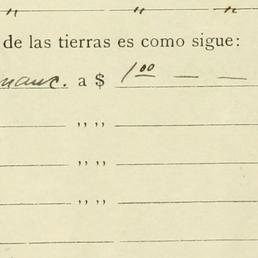 " " "
de las tierras es como sigue:
a $ 1.00 — —
" "
" "
" "